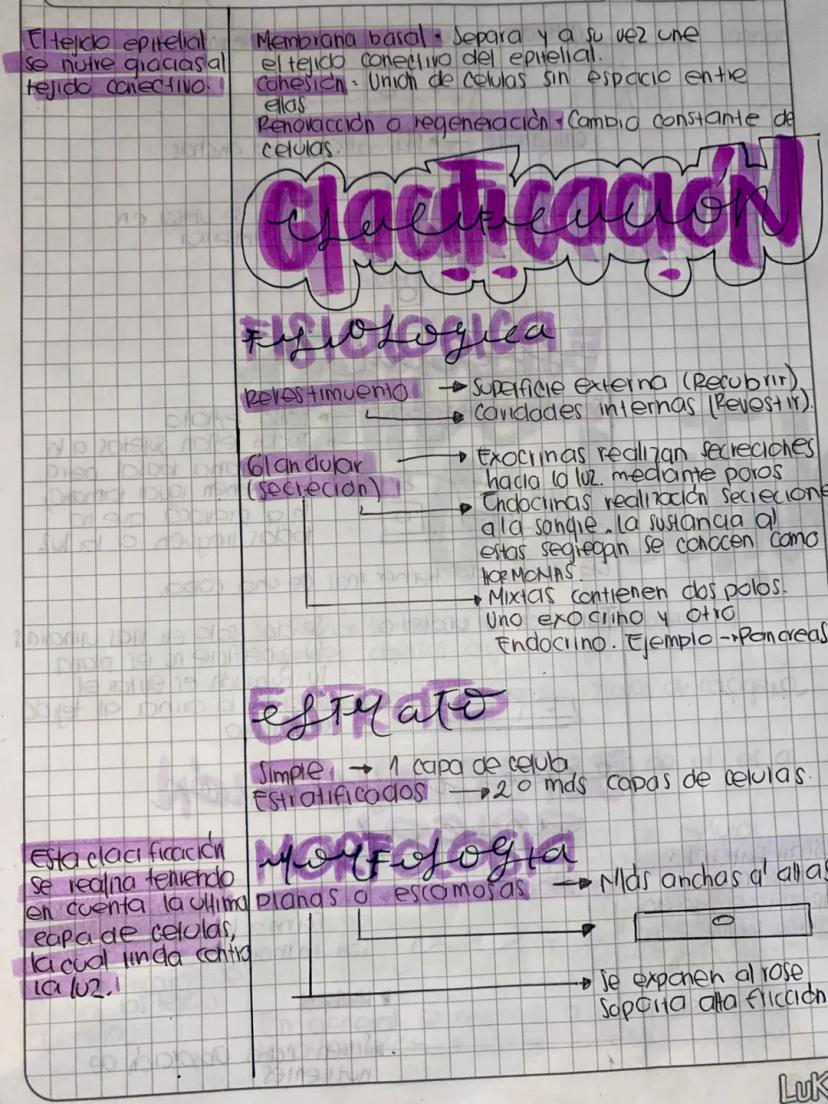 El tejido epitelial
se nutre gracias al
tejido conectivo.
Membrana basal = Separa y a su vez une
el tejido conectivo del epitelial.
Cohesión = Unión de celulas sin espacio entre
ellas
Renovacción o regeneración = Cambio constante de
celulas.
Clacificación
Fisiologica
Revestimiento → Superficie externa (Recubrir)
→ Cavidades internas (Revestir).
Glandular
(secreción)
→ Exocrinas realizan secreciones
hacia la luz mediante poros
→ Endocrinas realización secrecione
a la sangre. la sustancia q'
estas segregan se conocen como
HORMONAS.
→ Mixtas contienen dos polos.
Uno exocrino y otro
Endocrino. Ejemplo → Pancreas
Estrato
Simple → 1 capa de celula
Estratificados → 2 o más capas de celulas.
Esta clacificación
se realiza teniendo
en cuenta la ultima
capa de celulas,
la cual linda contra
la luz.
Morfologia
Planas o escamosas → Más anchas q' altas
→ Se exponen al rose
soporta alta fricción
Luk